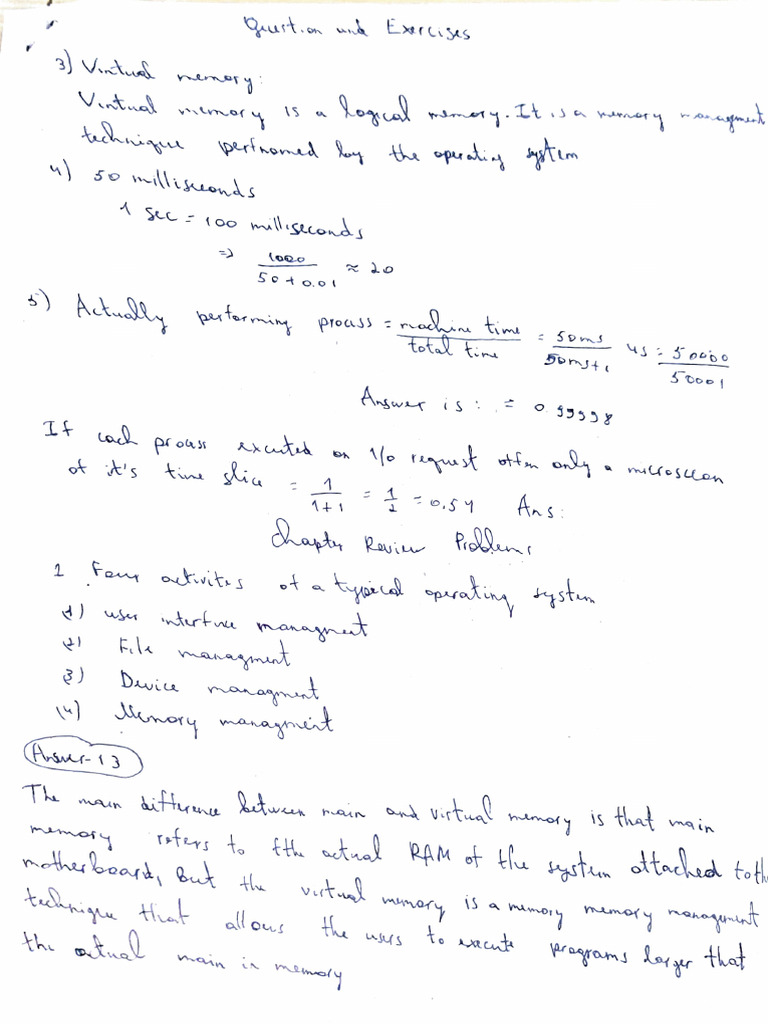 Question and Exercises
3) Virtual memory:
Virtual memory is a logical memory. It is a memory managment
technique perfnomed by the operating system
4) 50 milliseconds
1 sec = 100 milliseconds
=> 1000 / 50 + 0.01 ≈ 20
5) Actually performing process = machine time / total time = 50ms / 50ms+1 45 = 50000 / 50001
Answer is: = 0.99998
If each process excuted an I/o request often only a microsecon
of it's time slice = 1 / 1+1 = 1/2 = 0.54 Ans:
Chapter Review Problems
1 Four activites of a typical operating system
1) user interfuce managment
2) File managment
3) Device managment
(4) Memory managment
Answer-13
The main difference between main and virtual memory is that main
memory refers to tthe actual RAM of the system attached to the
motherboards, But the virtual memory is a memory memory management
technique that allows the users to execute programs larger that
the actual main in memory